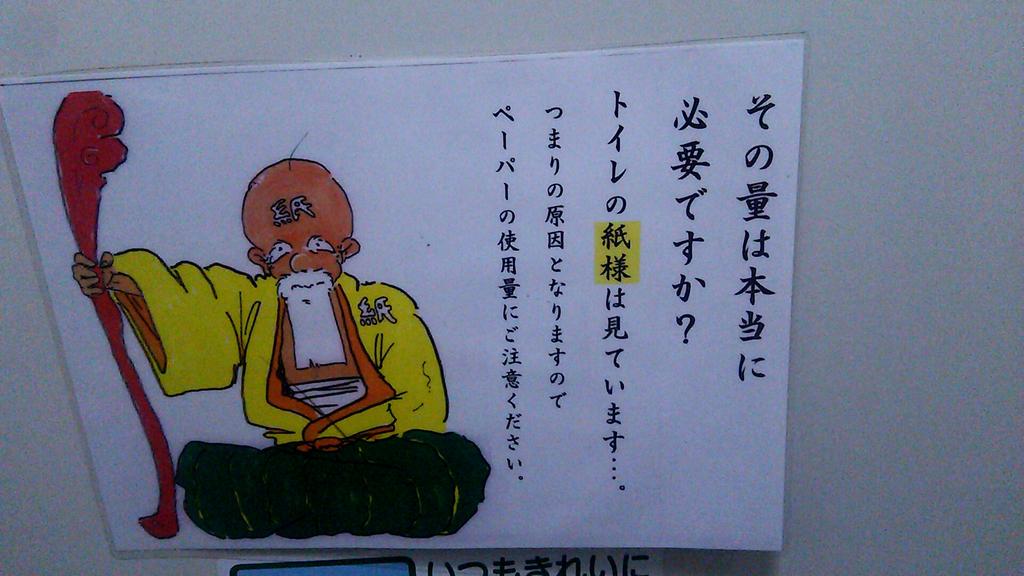 その量は本当に
必要ですか？
トイレの紙様は見ています…。
つまりの原因となりますので
ペーパーの使用量にご注意ください。
紙
紙
いつもきれいに